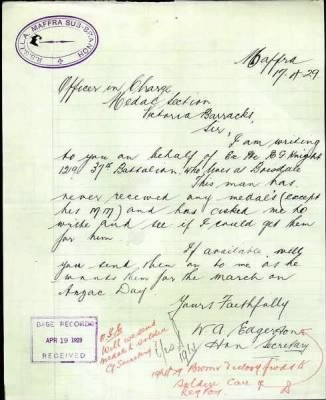 R.S.S.I.L.A. MAFFRA SUB-BRANCH
Maffra
17.4.29
Officer in Charge,
Medal Section
Victoria Barracks,
Sir,
I am writing
to you on behalf of Ex Pte
Knight
1219 37th Battalion, who lives at Bairnsdale
This man has
never received any medals (except
his MM) and has asked me to
write and see if I could get them
for him.
If available will
you send them on to me as he
wants them for the march on
Anzac Day
Yours Faithfully
W A Eagerson
Hon Secretary
BASE RECORDS
APR 19 1929
RECEIVED
Will we send
medals to soldier
C/ Secretary
Victory
Soldier Care of